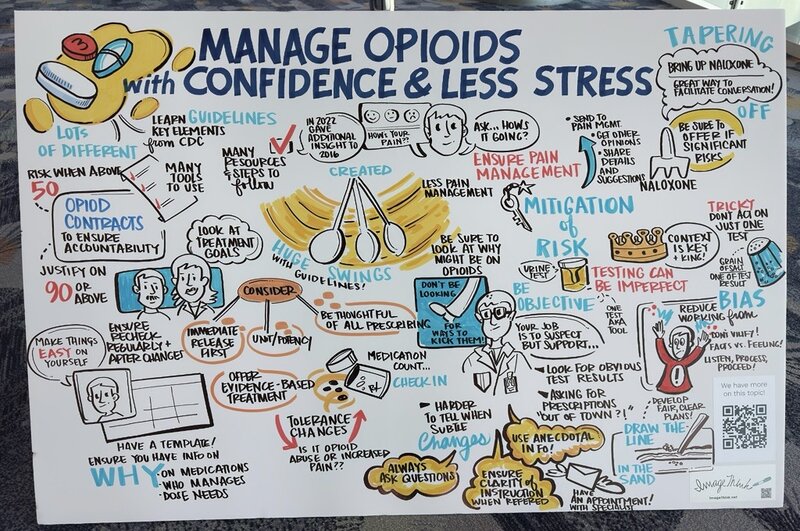 MANAGE OPIOIDS
with CONFIDENCE & LESS STRESS
TAPERING
BRING UP NALOXONE
GREAT WAY TO
FACILITATE CONVERSATION!
OFF
BE SURE TO
OFFER IF
SIGNIFICANT
RISKS
NALOXONE
LOTS
OF DIFFERENT
LEARN GUIDELINES
KEY ELEMENTS
from CDC
MANY
TOOLS
TO USE
MANY
RESOURCES
& STEPS to
follow
IN 2022
GAVE
ADDITIONAL
INSIGHT TO
2016
HOW'S YOUR
PAIN??
ASK... HOW'S
IT GOING?
ENSURE PAIN
MANAGEMENT
• SEND TO
PAIN MGMT.
• GET OTHER
OPINIONS
• SHARE
DETAILS
AND
SUGGESTIONS
RISK WHEN ABOVE
50
OPIOD
CONTRACTS
TO ENSURE
ACCOUNTABILITY
JUSTIFY ON
90 OR
ABOVE
LOOK AT
TREATMENT
GOALS
CREATED
HUGE SWINGS
with GUIDELINES!
LESS PAIN
MANAGEMENT
BE SURE TO
LOOK AT WHY
MIGHT BE ON
OPIOIDS
MITIGATION
of
RISK
URINE
TEST
TESTING CAN
BE IMPERFECT
CONTEXT
IS KEY
+ KING!
TRICKY
DON'T ACT ON
JUST ONE
TEST
GRAIN
OF SALT
ONE OF TEST
RESULT
BE
OBJECTIVE
ONE
TEST
AKA
TOOL
REDUCE BIAS
WORKING from
DON'T VILIFY!
FACTS vs. FEELING!
LISTEN, PROCESS,
PROCEED!
DEVELOP
FAIR, CLEAR
PLANS!
DRAW THE
LINE
IN THE
SAND
MAKE THINGS
EASY ON
YOURSELF
ENSURE
RECHECK
REGULARLY +
AFTER CHANGES
CONSIDER
IMMEDIATE
RELEASE
FIRST
UNIT/POTENCY
BE THOUGHTFUL
OF ALL PRESCRIBING
OFFER
EVIDENCE-BASED
TREATMENT
MEDICATION
COUNT...
CHECK IN
TOLERANCE
CHANGES
IS IT OPIOID
ABUSE OR INCREASED
PAIN??
DON'T BE
LOOKING
FOR WAYS TO
KICK THEM!
YOUR JOB
IS TO SUSPECT
BUT SUPPORT...
LOOK FOR OBVIOUS
TEST RESULTS
ASKING FOR
PRESCRIPTIONS
"OUT OF TOWN?!"
HARDER
TO TELL WHEN
SUBTLE
Changes
USE ANECDOTAL
INFO!
ALWAYS
ASK QUESTIONS
ENSURE
CLARITY OF
INSTRUCTION
WHEN REFERED
HAVE
AN APPOINTMENT!
WITH SPECIALIST
HAVE A TEMPLATE!
ENSURE YOU HAVE INFO ON
WHY
• ON MEDICATIONS
• WHO MANAGES
• DOSE NEEDS
We have more
on this topic!
ImageThink
ImageThink.net